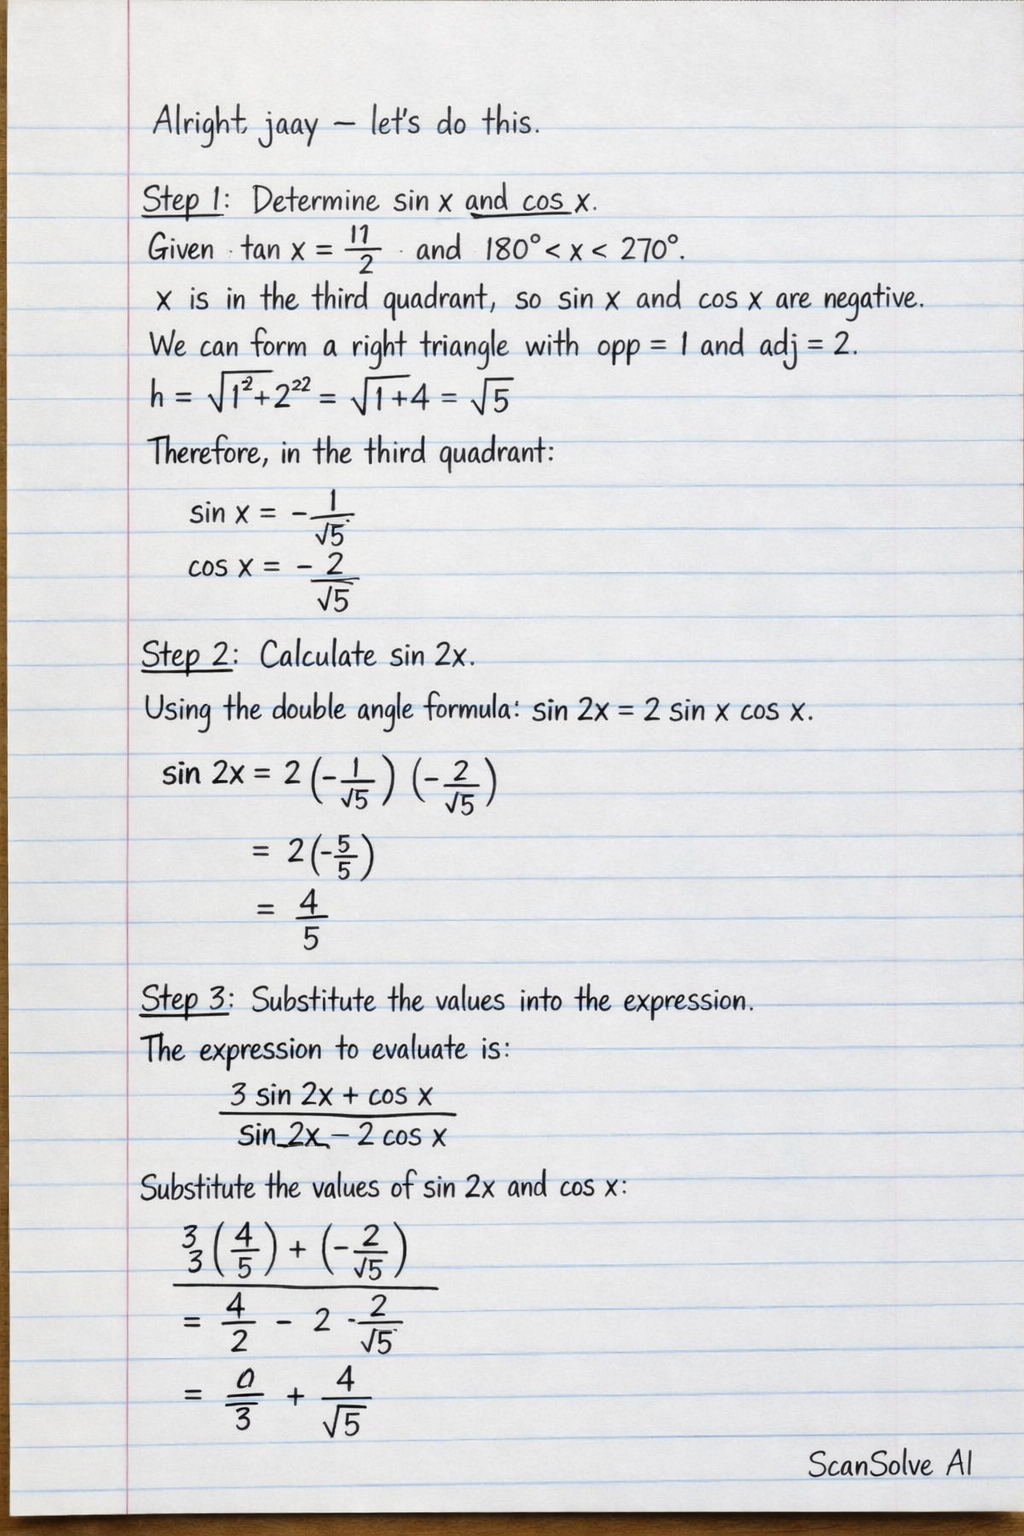 Alright, jaay – let's do this.
Step 1: Determine sin x and cos x.
Given tan x = 11/2 and 180° < x < 270°.
x is in the third quadrant, so sin x and cos x are negative.
We can form a right triangle with opp = 1 and adj = 2.
h = √1²+2²² = √1+4 = √5
Therefore, in the third quadrant:
sin x = - 1/√5
cos x = - 2/√5
Step 2: Calculate sin 2x.
Using the double angle formula: sin 2x = 2 sin x cos x.
sin 2x = 2 (- 1/√5) (- 2/√5)
= 2 (- 5/5)
= 4/5
Step 3: Substitute the values into the expression.
The expression to evaluate is:
3 sin 2x + cos x
sin 2x - 2 cos x
Substitute the values of sin 2x and cos x:
3 3 (4/5) + (- 2/√5)
= 4/2 - 2 · 2/√5
= 0/3 + 4/√5
ScanSolve AI